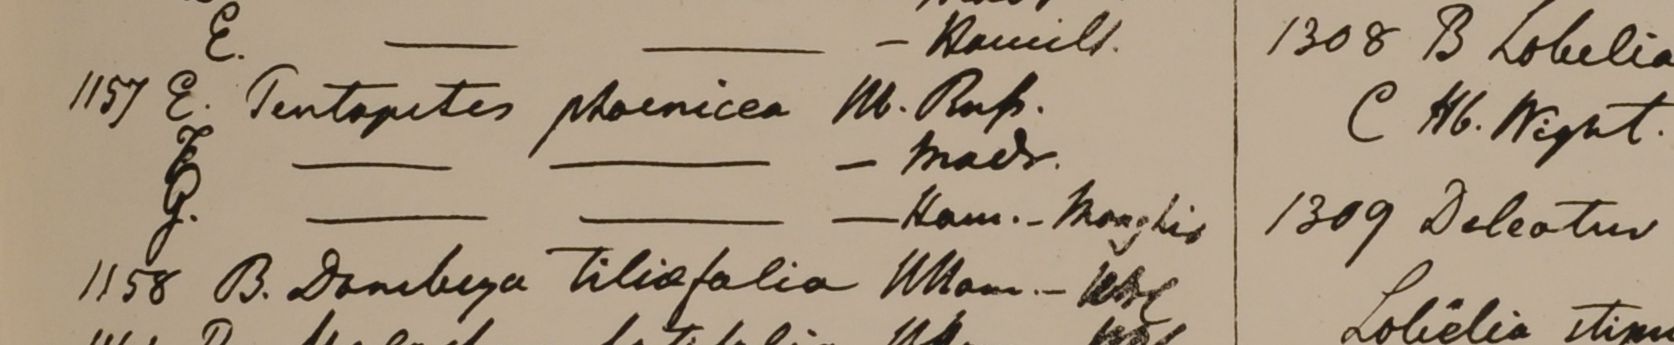 E. — — — Hamilt.
1157 E. Pentapetes phoenicea Hb. Roxb.
F — — — Madr.
G. — — — Ham. - Monghir
1158 B. Dombeya tiliaefolia HHam. -
1308 B Lobelia
C Hb. Wight.
1309 Deleatur
Lobelia